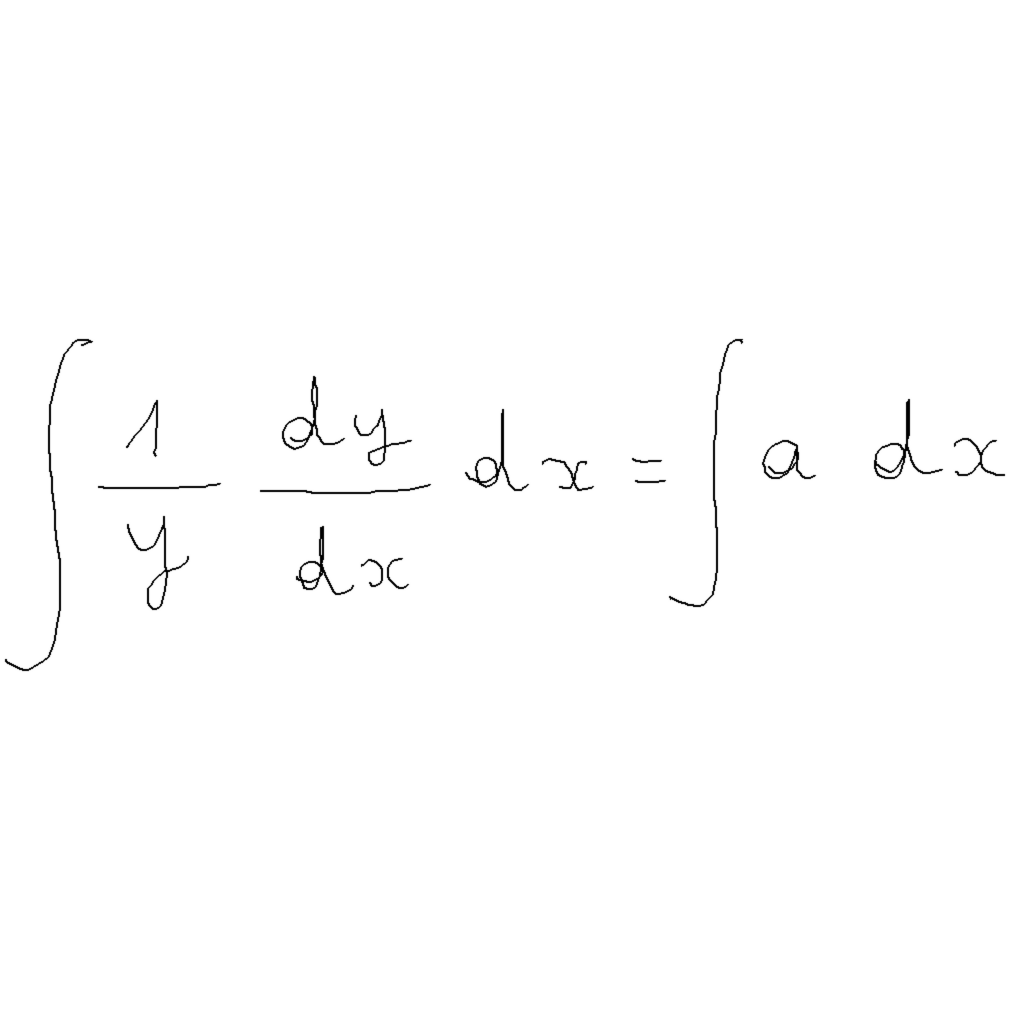 ∫ 1/y dy/dx dx = ∫ a dx